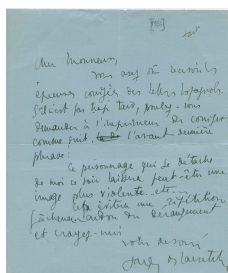 Cher Monsieur,
vous avez dû recevoir les
épreuves corrigées des lettres
S'il n'est pas trop tard, voulez-vous
demander à l'imprimeur de corriger
comme suit, l'avant dernière
phrase :
Ce personnage qui se détache
de moi ce soir laissera peut-être une
image plus violente etc...
cela évitera une répétition
pardon du dérangement
et croyez-moi
votre dévoué